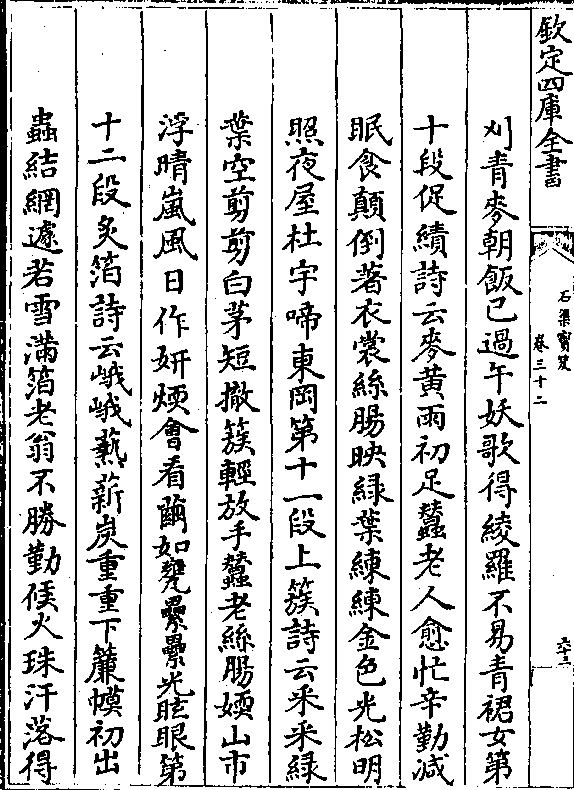 欽定四庫全書
石渠寶笈
卷三十二
六十三
刈青麥朝飯已過午妖歌得綾羅不易青裙女第
十段促績詩云麥黃雨初足蠶老人愈忙辛勤减
眠食顛倒著衣裳絲腸映緑葉練練金色光松明
照夜屋杜宇啼東岡第十一段上簇詩云采采緑
葉空剪剪白茅短撤簇輕放手蠶老絲腸㛄山市
浮晴嵐風日作妍煗會看繭如甕纍纍光眩眼第
十二段炙箔詩云峨峨爇薪炭重重下簾幙初出
蟲結網遽若雪滿箔老翁不勝勤候火珠汗落得